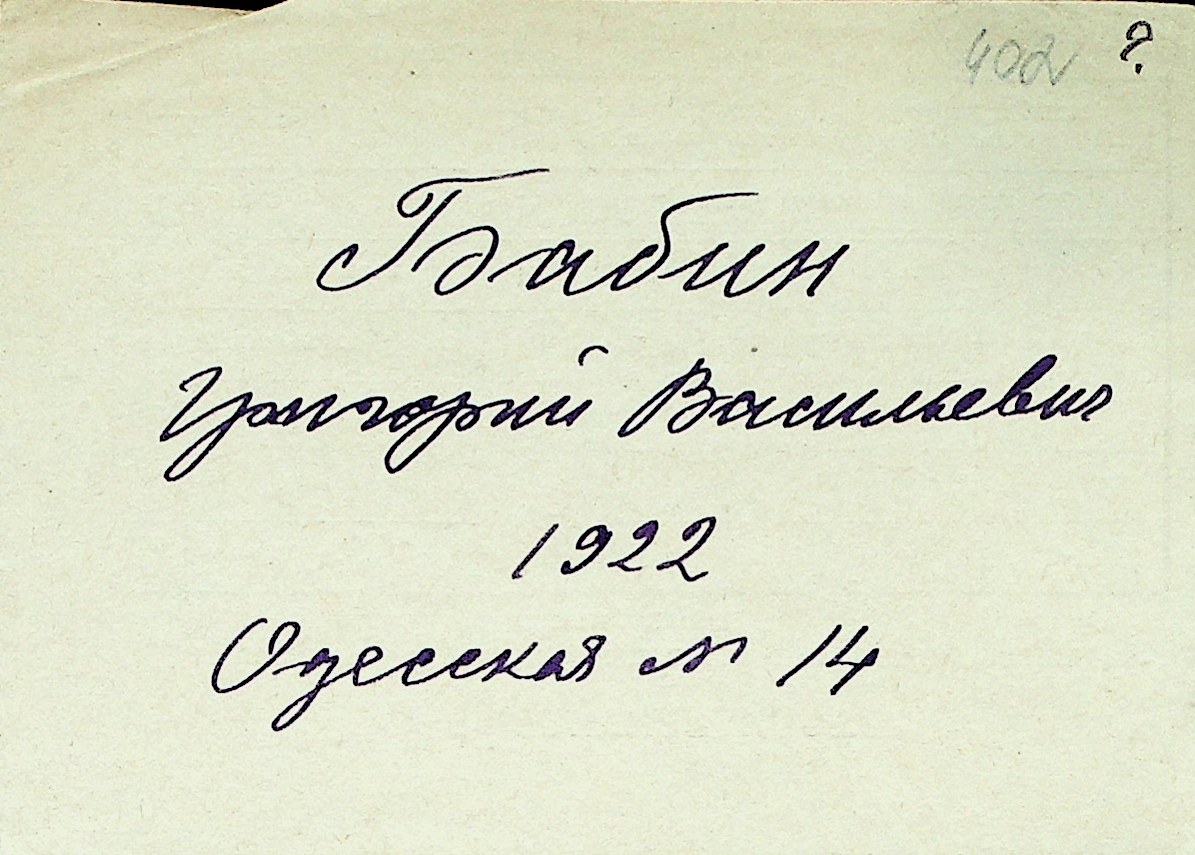 402 ?
Бабин
Григорий Васильевич
1922
Одесская № 14